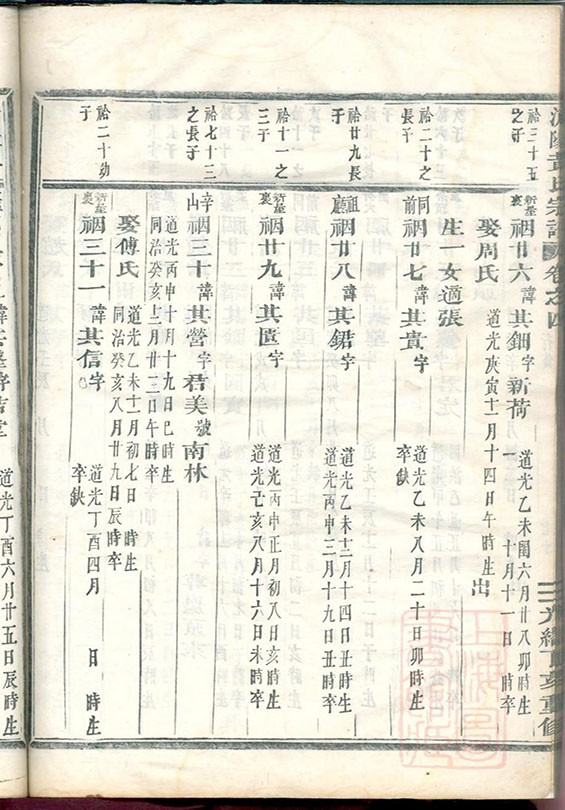 氏宗譜
卷之四
光緒丁亥重修
祫三十五之子
新塋裏
祵廿六諱其鈿字新荷
道光乙未閏六月廿八卯時生
十月十一日 時卒
娶周氏
道光庚寅十二月十四日午時生
出
生一女適張
祫二十之長子
同前
祵廿七諱其貴字
道光乙未八月二十日卯時生
卒缺
祫廿九長子
祖廳
祵廿八諱其鍩字
道光乙未十二月十四日丑時生
道光丙申三月十九日丑時卒
祫十一之三子
新塋裏
祵廿九諱其匱字
道光丙申正月初八日亥時生
道光己亥八月十六日未時卒
祫七十三之長子
辛山
祵三十諱其營字君美號南林
道光丙申十月十九日巳時生
同治癸亥十二月廿三日午時卒
娶傅氏
道光乙未十二月初七日 時生
同治癸亥八月廿九日辰時卒
祫二十幼子
新塋裏
祵三十一諱其信字
道光丁酉四月 日 時生
卒缺
道光丁酉六月廿五日辰時生